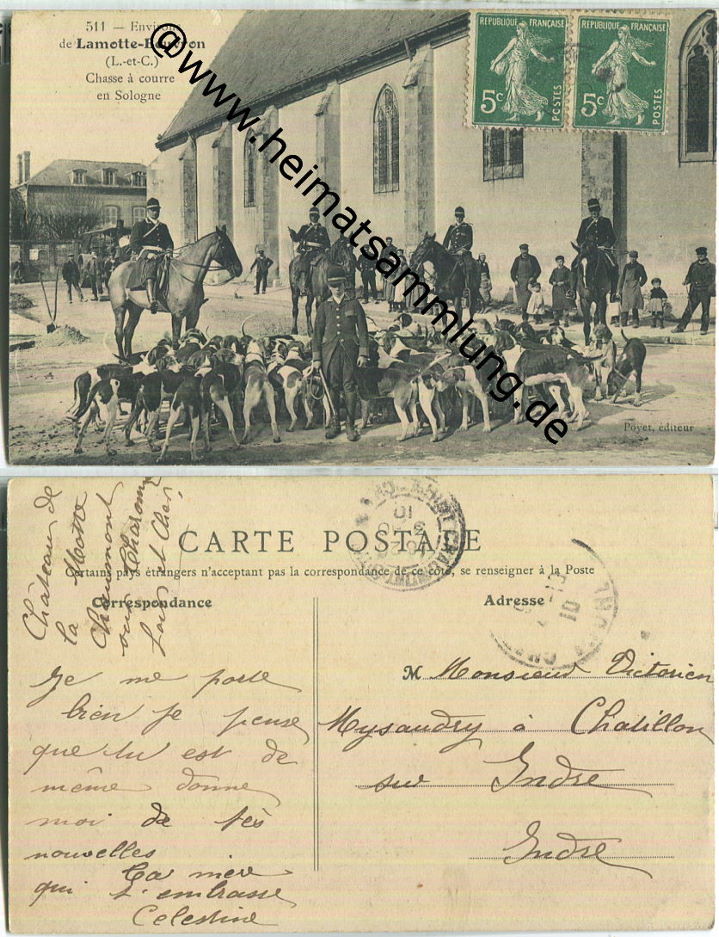 511 — Environs
de Lamotte-Beuvron
(L.-et-C.)
Chasse à courre
en Sologne
RÉPUBLIQUE FRANÇAISE
5c
POSTES
RÉPUBLIQUE FRANÇAISE
5c
POSTES
@www.heimatsammlung.de
Poyet, éditeur
CARTE POSTALE
Certains pays étrangers n'acceptant pas la correspondance de ce côté, se renseigner à la Poste
Correspondance
Adresse
Château de
la Motte
Chaumont
Loir et Cher
Je me porte
bien je pense
que tu est de
même donne
moi de tes
nouvelles
Ta mère
qui t'embrasse
Celestine
M Monsieur Victorien
Mysaudry à Chatillon
sur Indre
Indre